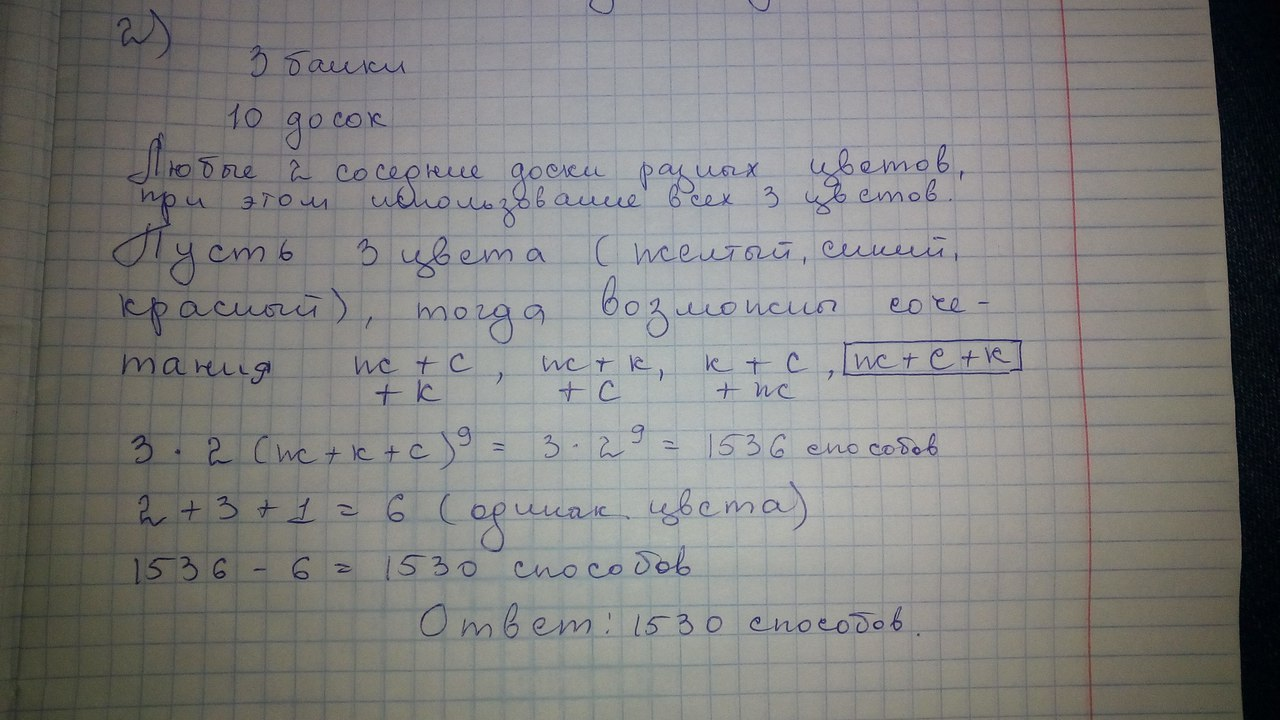 2)
3 банки
10 досок
Любые 2 соседние доски разных цветов,
при этом использование всех 3 цветов.
Пусть 3 цвета (желтый, синий,
красный), тогда возможны соче-
тания ж + с + к, ж + к + с, к + с + ж, ж + с + к
3 · 2 (ж + к + с)⁹ = 3 · 2⁹ = 1536 способов
2 + 3 + 1 = 6 (одинак. цвета)
1536 - 6 = 1530 способов
Ответ: 1530 способов.